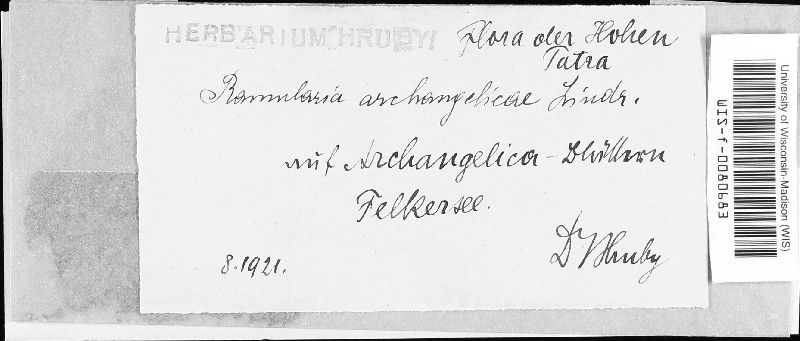 HERBARIUM HRUBY
Flora der Hohen
Tatra
Ramularia archangelicae Lindr.
auf Archangelica-Blättern
Felkersee.
8.1921.
Dr J Hruby
University of Wisconsin-Madison (WIS)
WIS-f-0080683